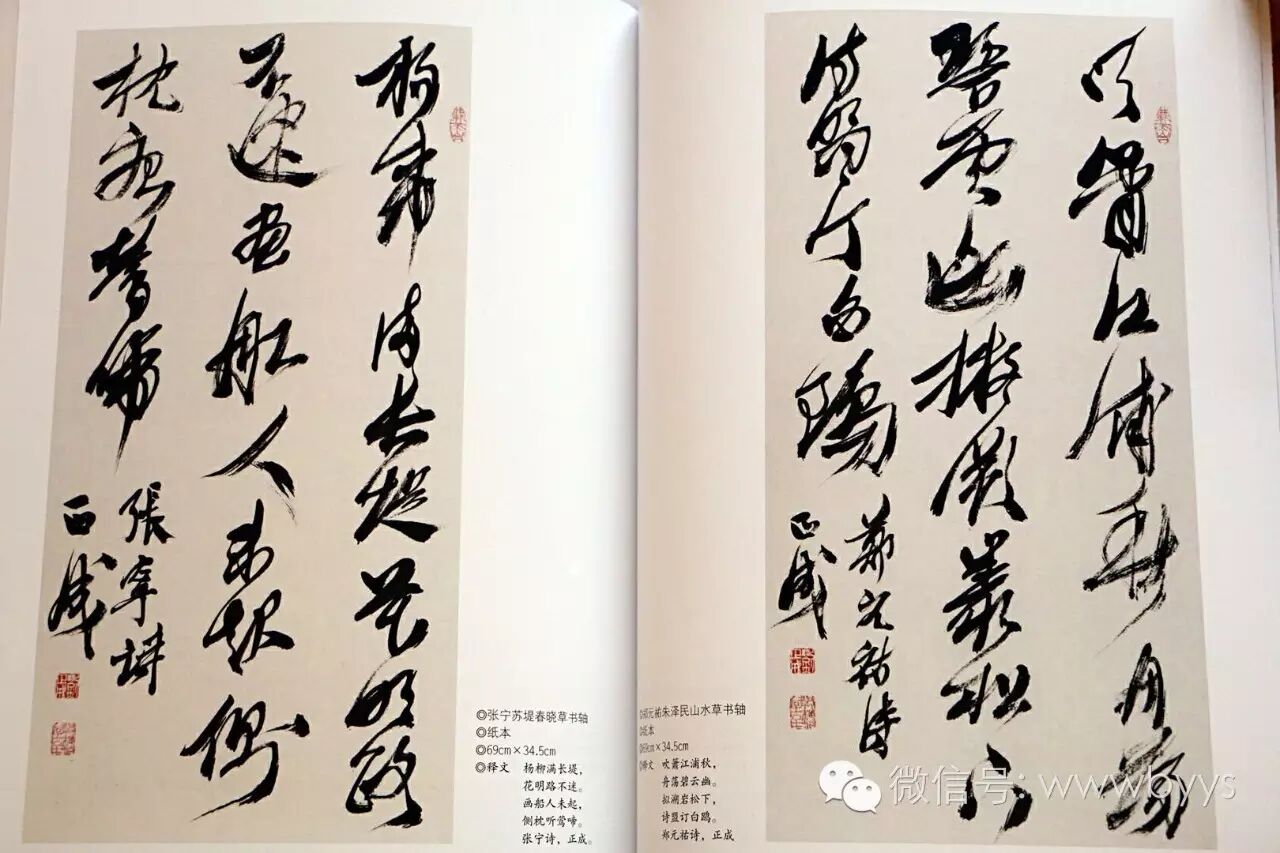 楊柳滿長堤花明路
不迷畫船人未起側
枕聽鶯啼
張寧詩
正成
◎张宁苏堤春晓草书轴
◎纸本
◎69cm×34.5cm
◎释文 杨柳满长堤，
花明路不迷。
画船人未起，
侧枕听莺啼。
张宁诗，正成。
吹簫江浦秋舟蕩
碧雲幽擬溯巖松下
詩盟訂白鷗
鄭元祐詩
正成
◎郑元祐朱泽民山水草书轴
◎纸本
◎69cm×34.5cm
◎释文 吹箫江浦秋，
舟荡碧云幽。
拟溯岩松下，
诗盟订白鸥。
郑元祐诗，正成
微信号: wwwbyys